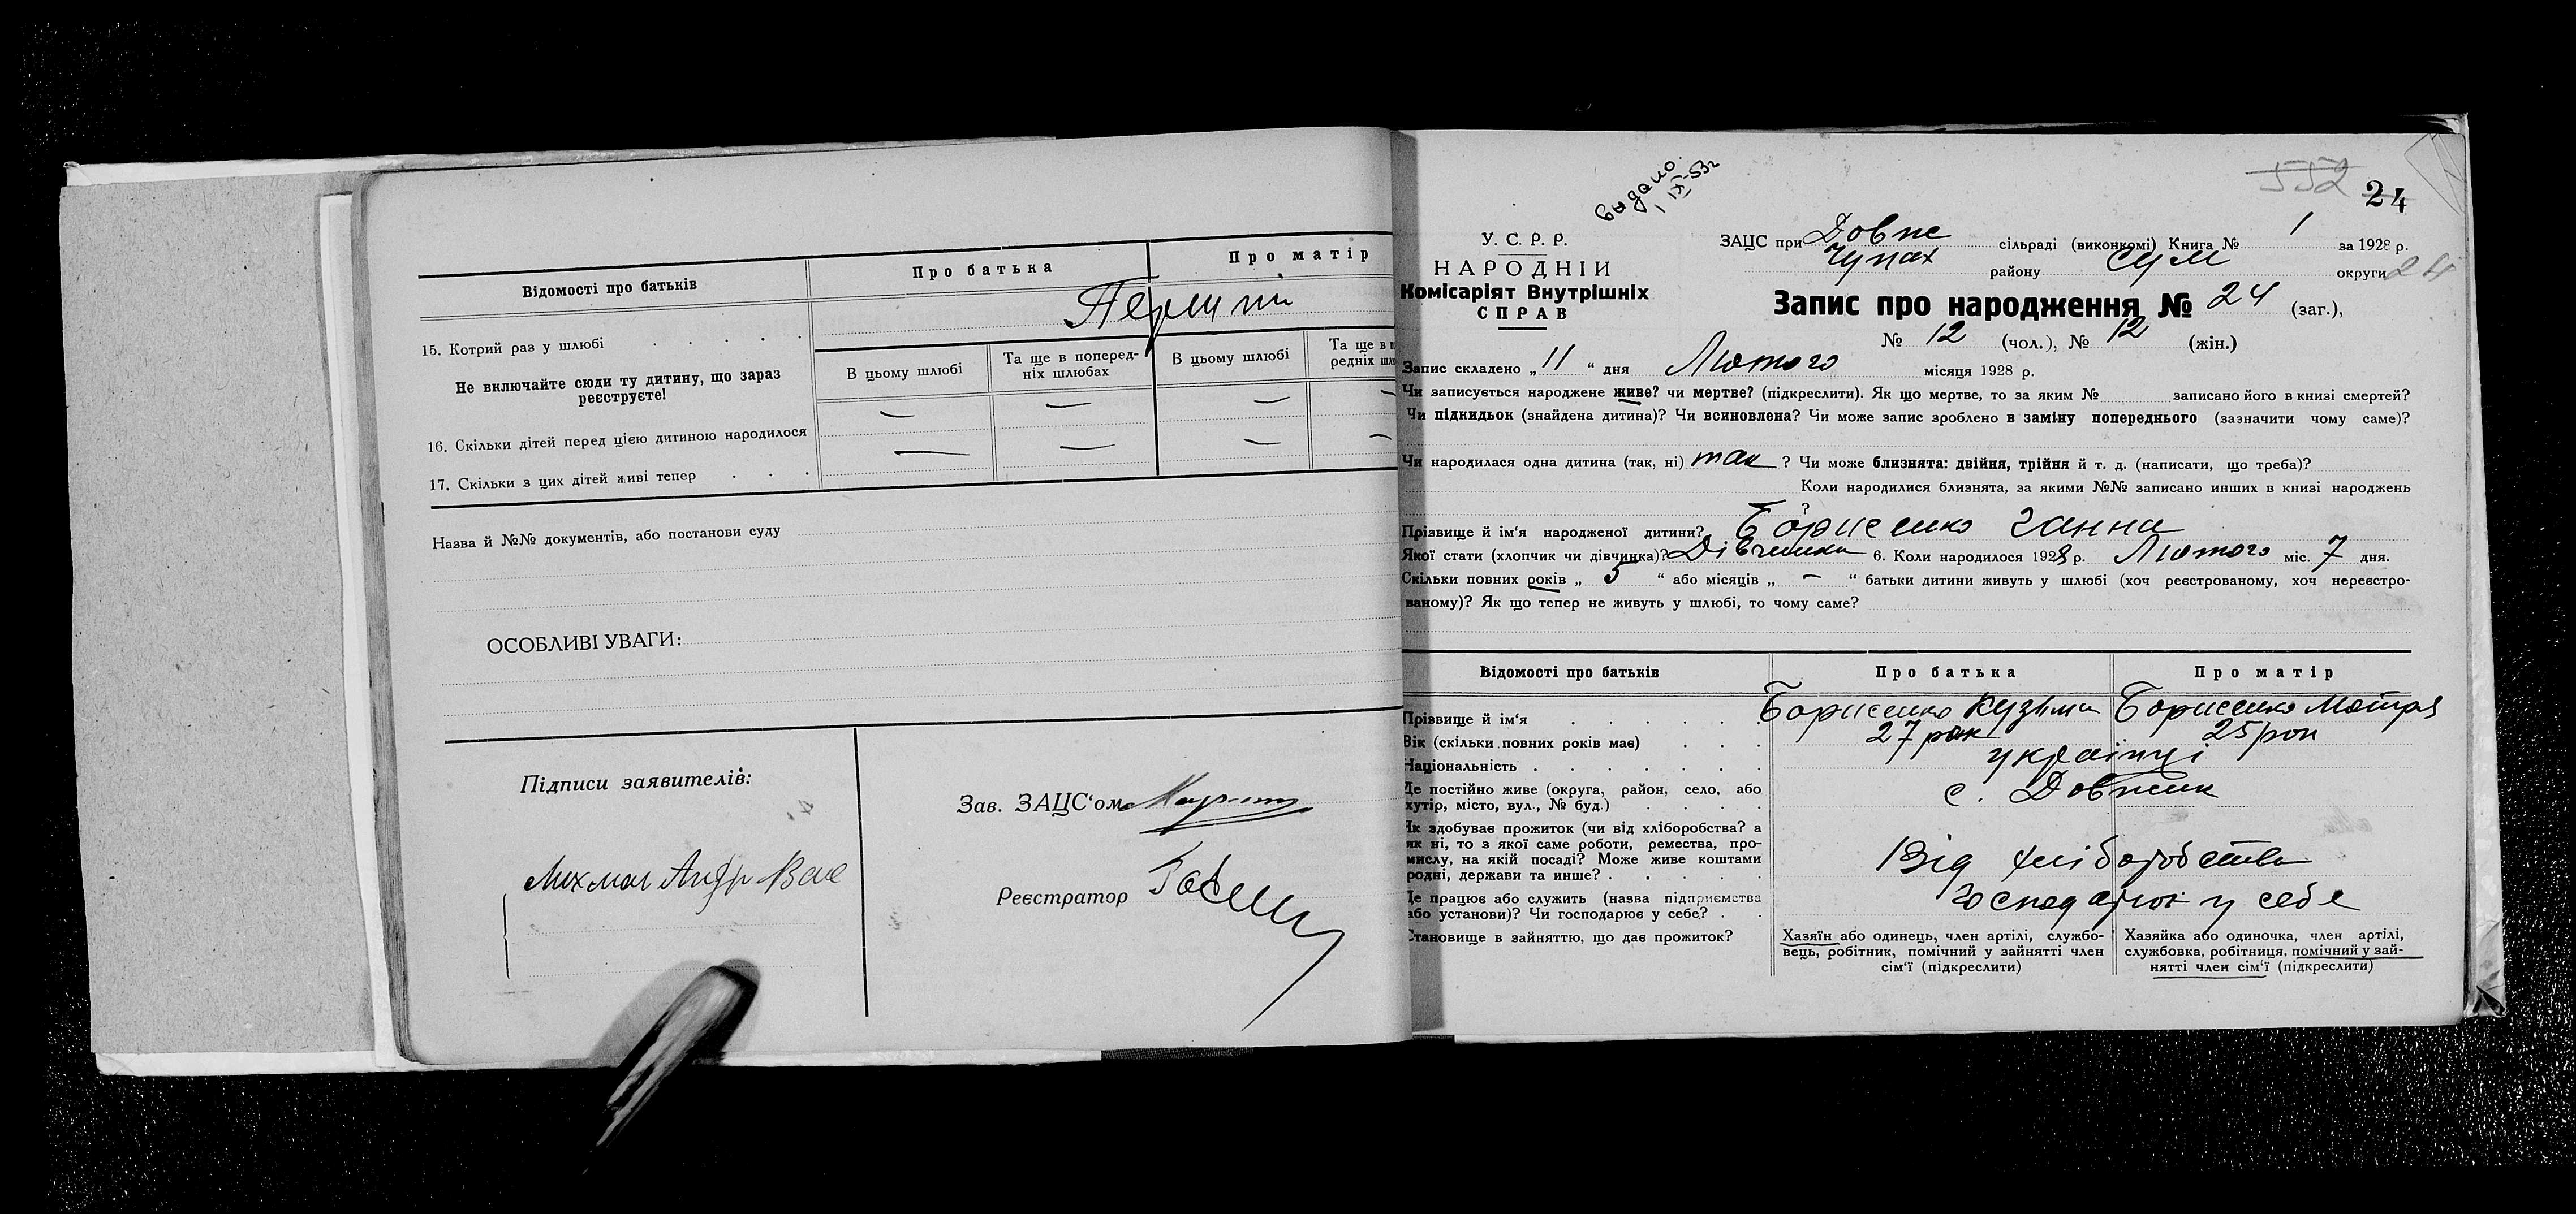 Відомості про батьків
Про батька
Про матір
15. Котрий раз у шлюбі
Не включайте сюди ту дитину, що зараз
реєструєте!
В цьому шлюбі
Та ще в поперед-
ніх шлюбах
В цьому шлюбі
Та ще в
редніх
— — — —
16. Скільки дітей перед цією дитиною народилося
— — — —
17. Скільки з цих дітей живі тепер
Назва й №№ документів, або постанови суду
ОСОБЛИВІ УВАГИ:
Підписи заявителів:
Зав. ЗАЦС'ом
Андр
Реєстратор
видано
1 IX-53г
552
24
У. С. Р. Р.
НАРОДНІЙ
Комісаріят Внутрішніх
СПРАВ
ЗАЦС при Довже сільраді (виконкомі) Книга № 1 за 1928 р.
Чупах району Сум округи 24
Запис про народження № 24 (заг.),
№ 12 (чол.), № 12 (жін.)
Запис складено „11“ дня Лютого місяця 1928 р.
Чи записується народжене живе? чи мертве? (підкреслити). Як що мертве, то за яким № записано його в книзі смертей?
Чи підкидьок (знайдена дитина)? Чи всиновлена? Чи може запис зроблено в заміну попереднього (зазначити чому саме)?
Чи народилася одна дитина (так, ні) так ? Чи може близнята: двійня, трійня й т. д. (написати, що треба)?
Коли народилися близнята, за якими №№ записано инших в книзі народжень
?
Прізвище й ім'я народженої дитини? Борисенко Ганна
Якої стати (хлопчик чи дівчинка)? Дівчинка 6. Коли народилося 1928 р. Лютого міс. 7 дня.
Скільки повних років „5“ або місяців „—“ батьки дитини живуть у шлюбі (хоч реєстрованому, хоч нереєстро-
ваному)? Як що тепер не живуть у шлюбі, то чому саме?
Відомості про батьків
Про батька
Про матір
Прізвище й ім'я
Борисенко Кузьма
Борисенко Мотря
Вік (скільки повних років має)
27 рок
25 рок
Національність
українці
Де постійно живе (округа, район, село, або
хутір, місто, вул., № буд.)
с. Довжик
Як здобуває прожиток (чи від хліборобства? а
як ні, то з якої саме роботи, ремества, про-
мислу, на якій посаді? Може живе коштами
родні, держави та инше?
Від хліборобства
Де працює або служить (назва підприємства
або установи)? Чи господарює у себе?
господарює у себе
Становище в зайняттю, що дає прожиток?
Хазяїн або одинець, член артілі, службо-
вець, робітник, помічний у зайнятті член
сім'ї (підкреслити)
Хазяйка або одиночка, член артілі,
службовка, робітниця, помічний у зай-
нятті член сім'ї (підкреслити)